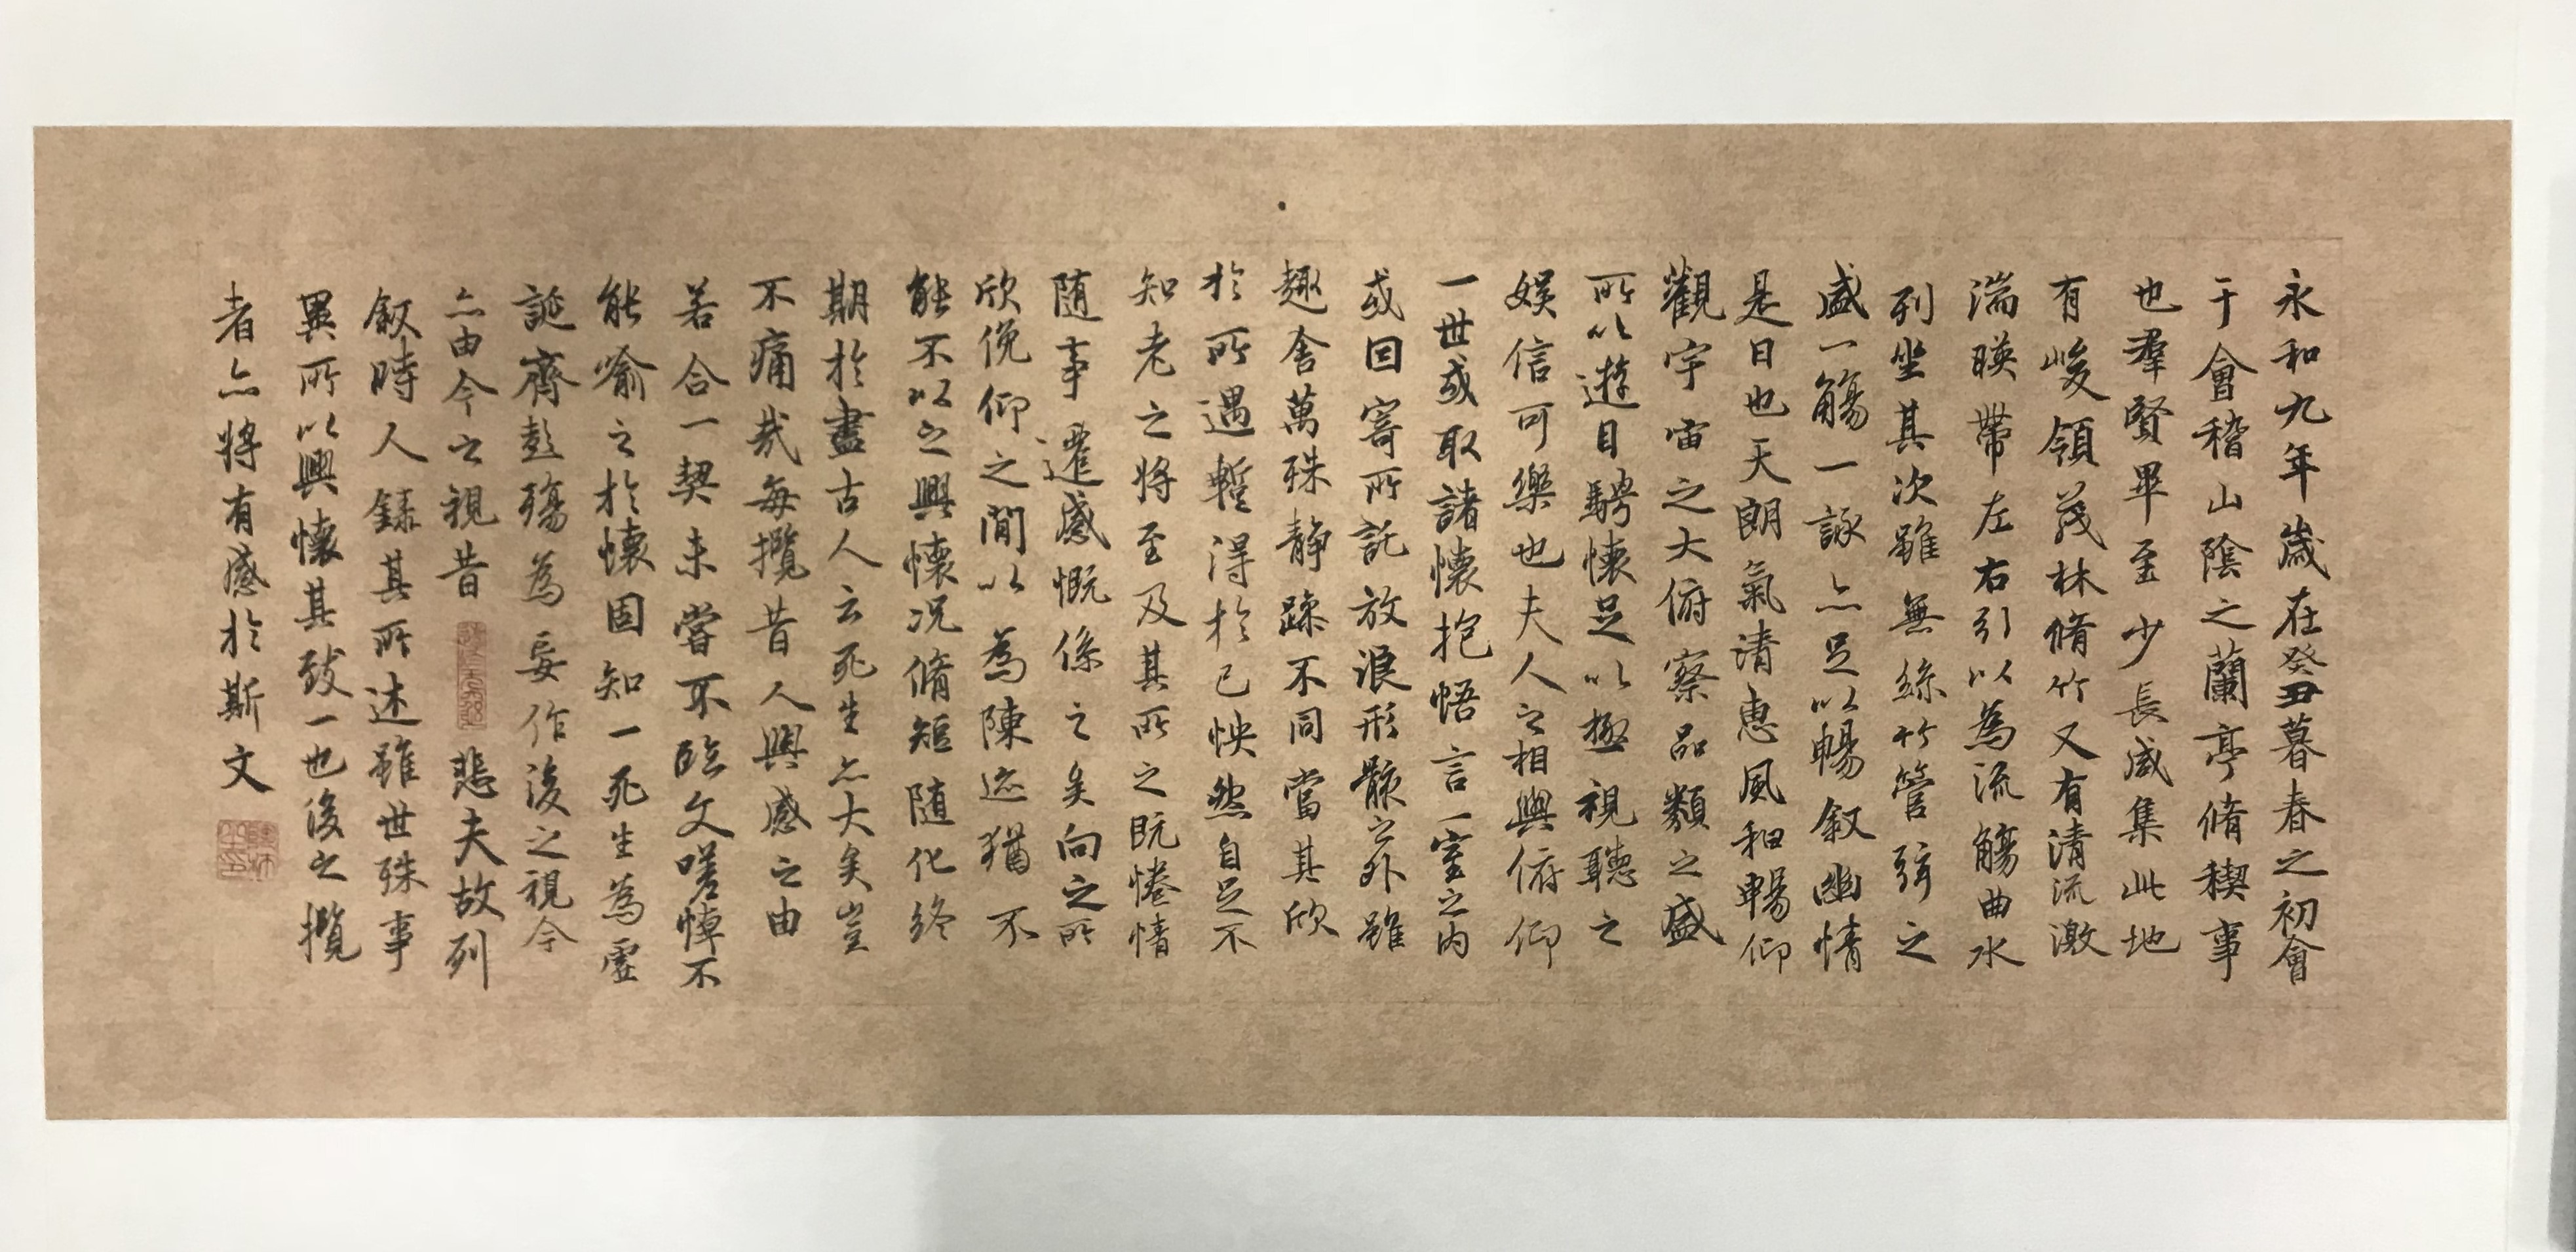 永和九年歲在癸丑暮春之初會
于會稽山陰之蘭亭脩稧事
也羣賢畢至少長咸集此地
有峻領茂林脩竹又有清流激
湍暎帶左右引以為流觴曲水
列坐其次雖無絲竹管弦之
盛一觴一詠亦足以暢敘幽情
是日也天朗氣清惠風和暢仰
觀宇宙之大俯察品類之盛
所以遊目騁懷足以極視聽之
娛信可樂也夫人之相與俯仰
一世或取諸懷抱悟言一室之內
或因寄所託放浪形骸之外雖
趣舍萬殊静躁不同當其欣
於所遇暫得於己怏然自足不
知老之將至及其所之既惓情
随事遷感慨係之矣向之所
欣俛仰之閒以為陳迹猶不
能不以之興懷況脩短随化終
期於盡古人云死生亦大矣豈
不痛哉每攬昔人興感之由
若合一契未嘗不臨文嗟悼不
能喻之於懷固知一死生為虛
誕齊彭殤為妄作後之視今
亦由今之視昔悲夫故列
敘時人錄其所述雖世殊事
異所以興懷其致一也後之攬
者亦將有感於斯文